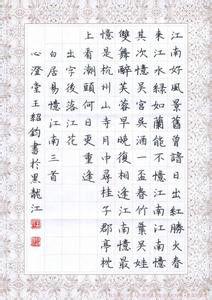 江南好風景舊曾諳日出紅勝火春
來江水綠如蘭能不憶江南江南憶
其次憶吳宮吳酒一盃春竹葉吳娃
雙舞醉芙蓉早晚復相逢江南憶最
憶是杭州山寺月中尋桂子郡亭枕
上看潮頭何日更重
出字後落江花
白居易憶江南三首
心澄堂王紹鈞書於黑龍江